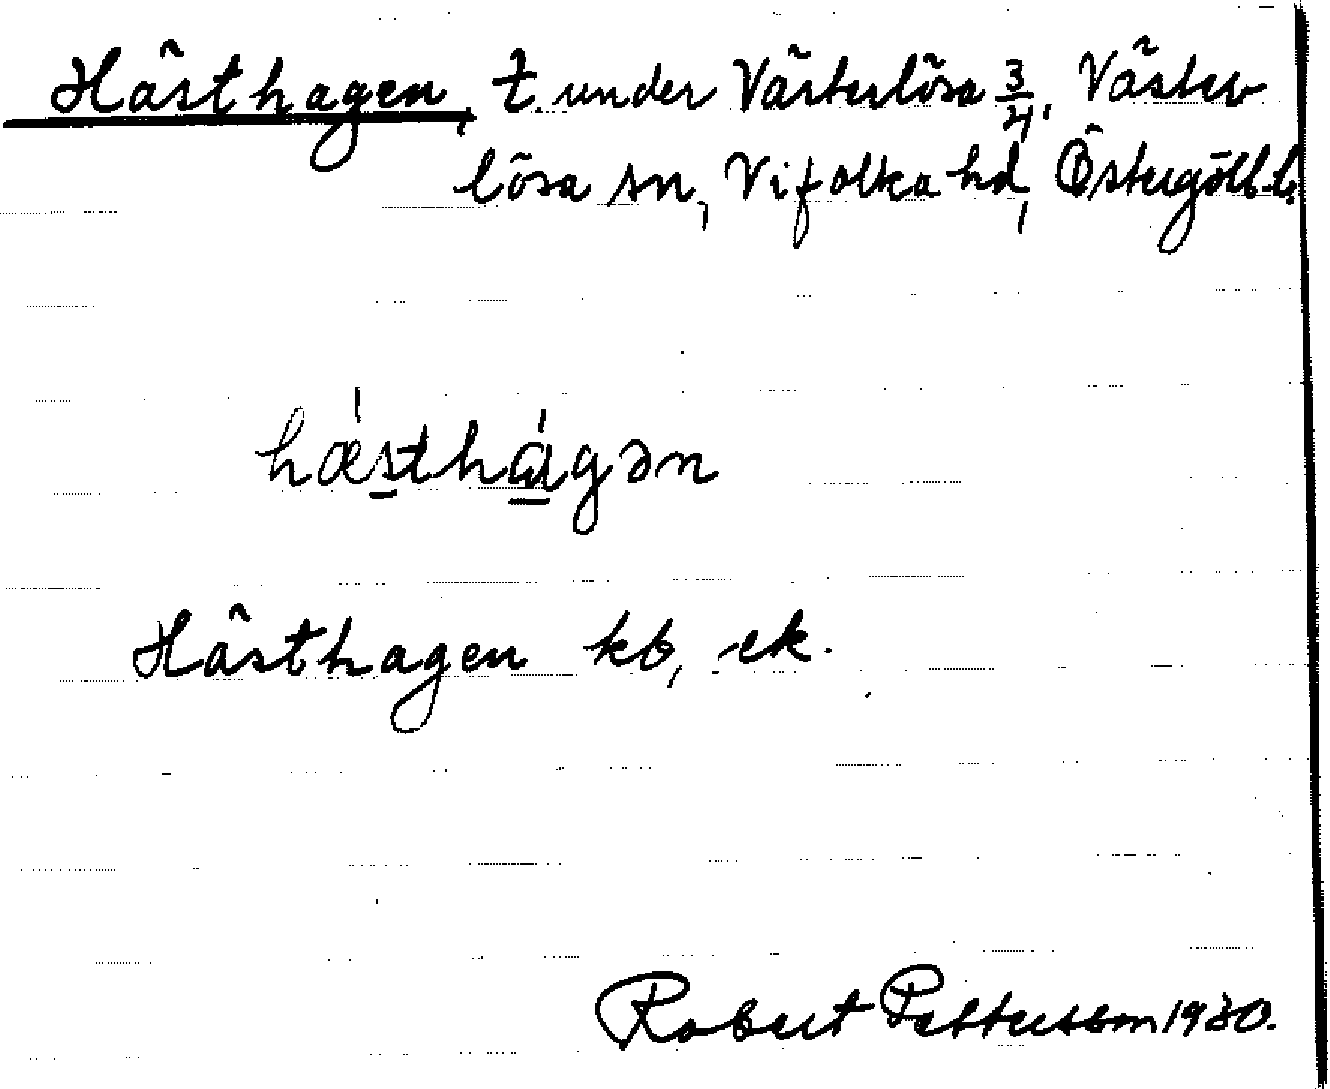 Hästhagen, t. under Västerlösa 3/4, Väster
lösa sn, Vifolka hd, Östergötl. l.
hǽsthágən
Hästhagen kb, ek.
Robert Pettersson 1930.